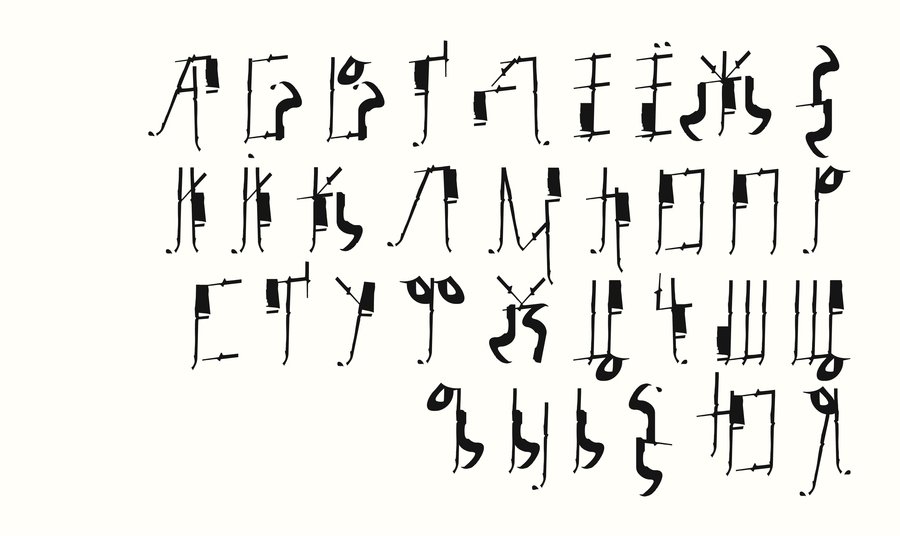 АБВГДЕЁЖЗ
ИЙКЛМНОПР
СТУФХЦЧШЩ
ЪЫЬЭЮЯ